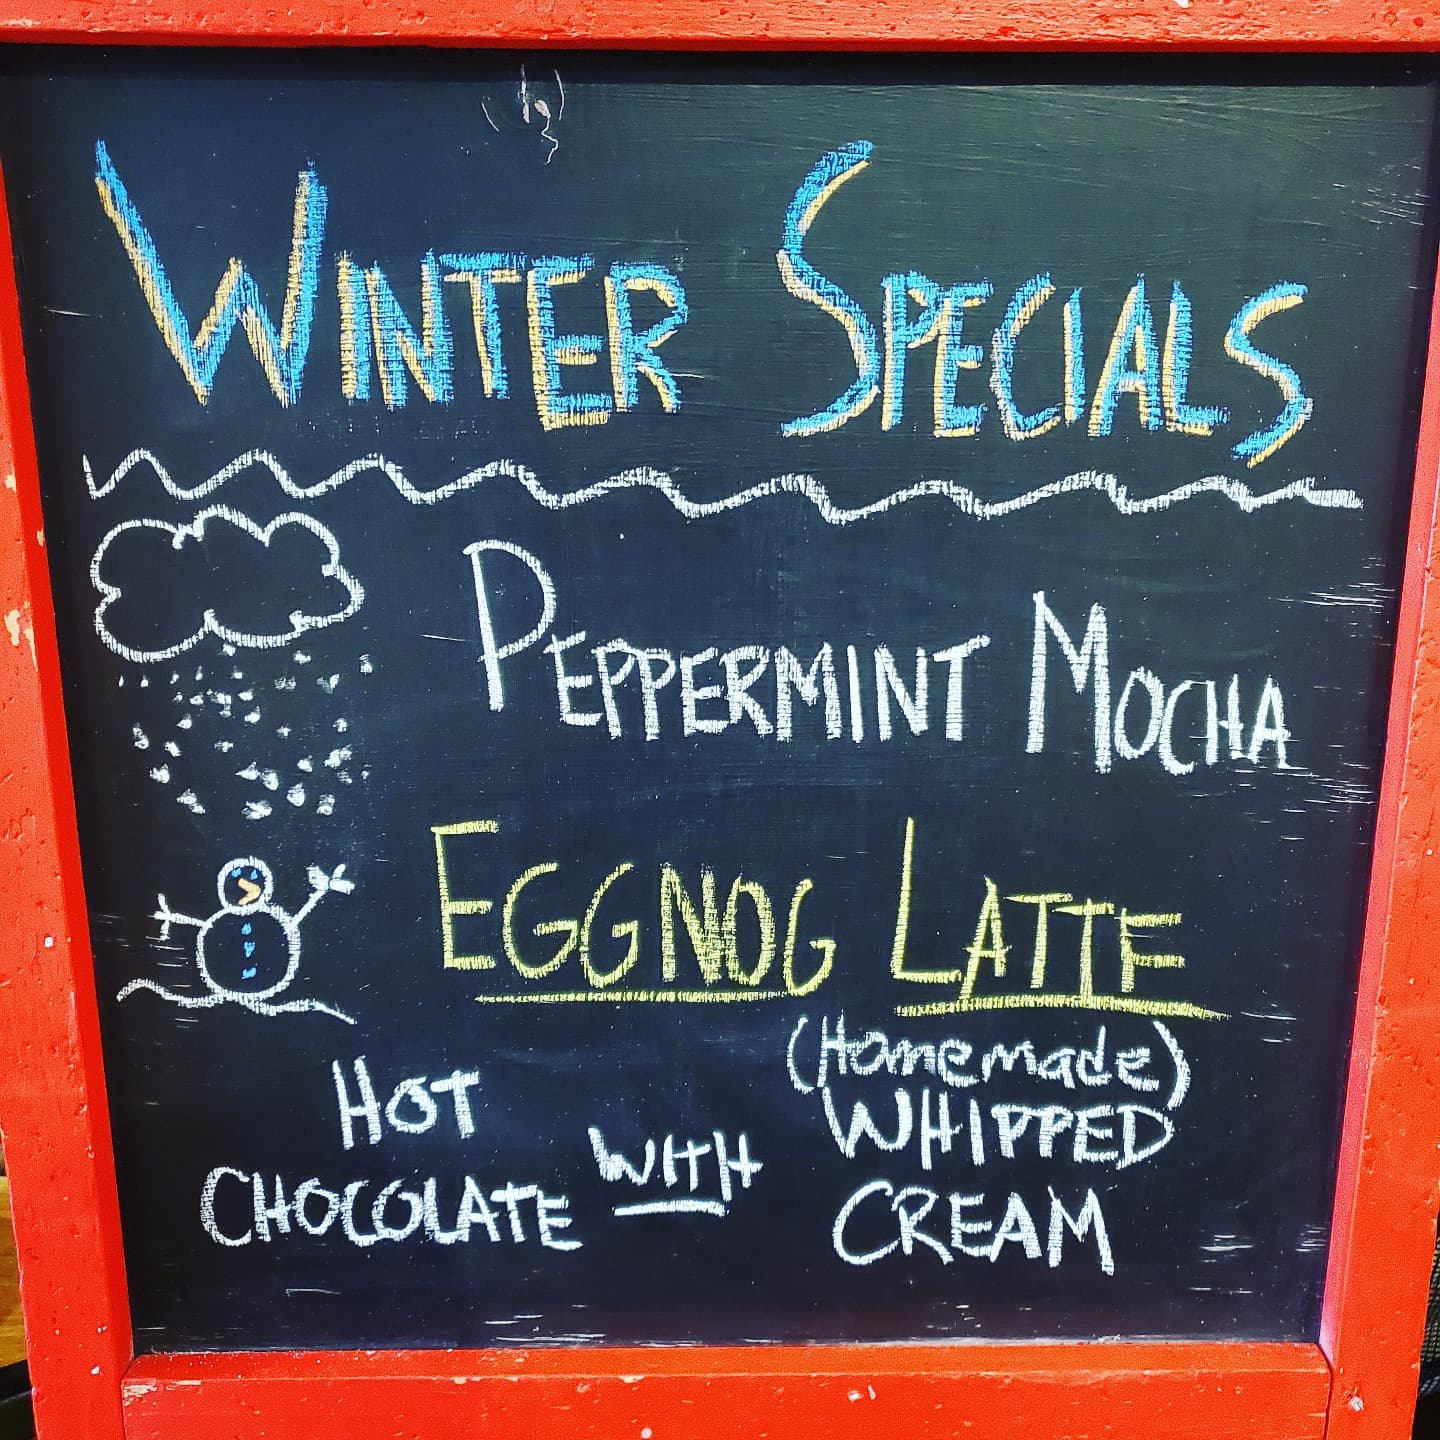 WINTER SPECIALS
PEPPERMINT MOCHA
EGGNOG LATTE
HOT CHOCOLATE WITH (Homemade) WHIPPED CREAM